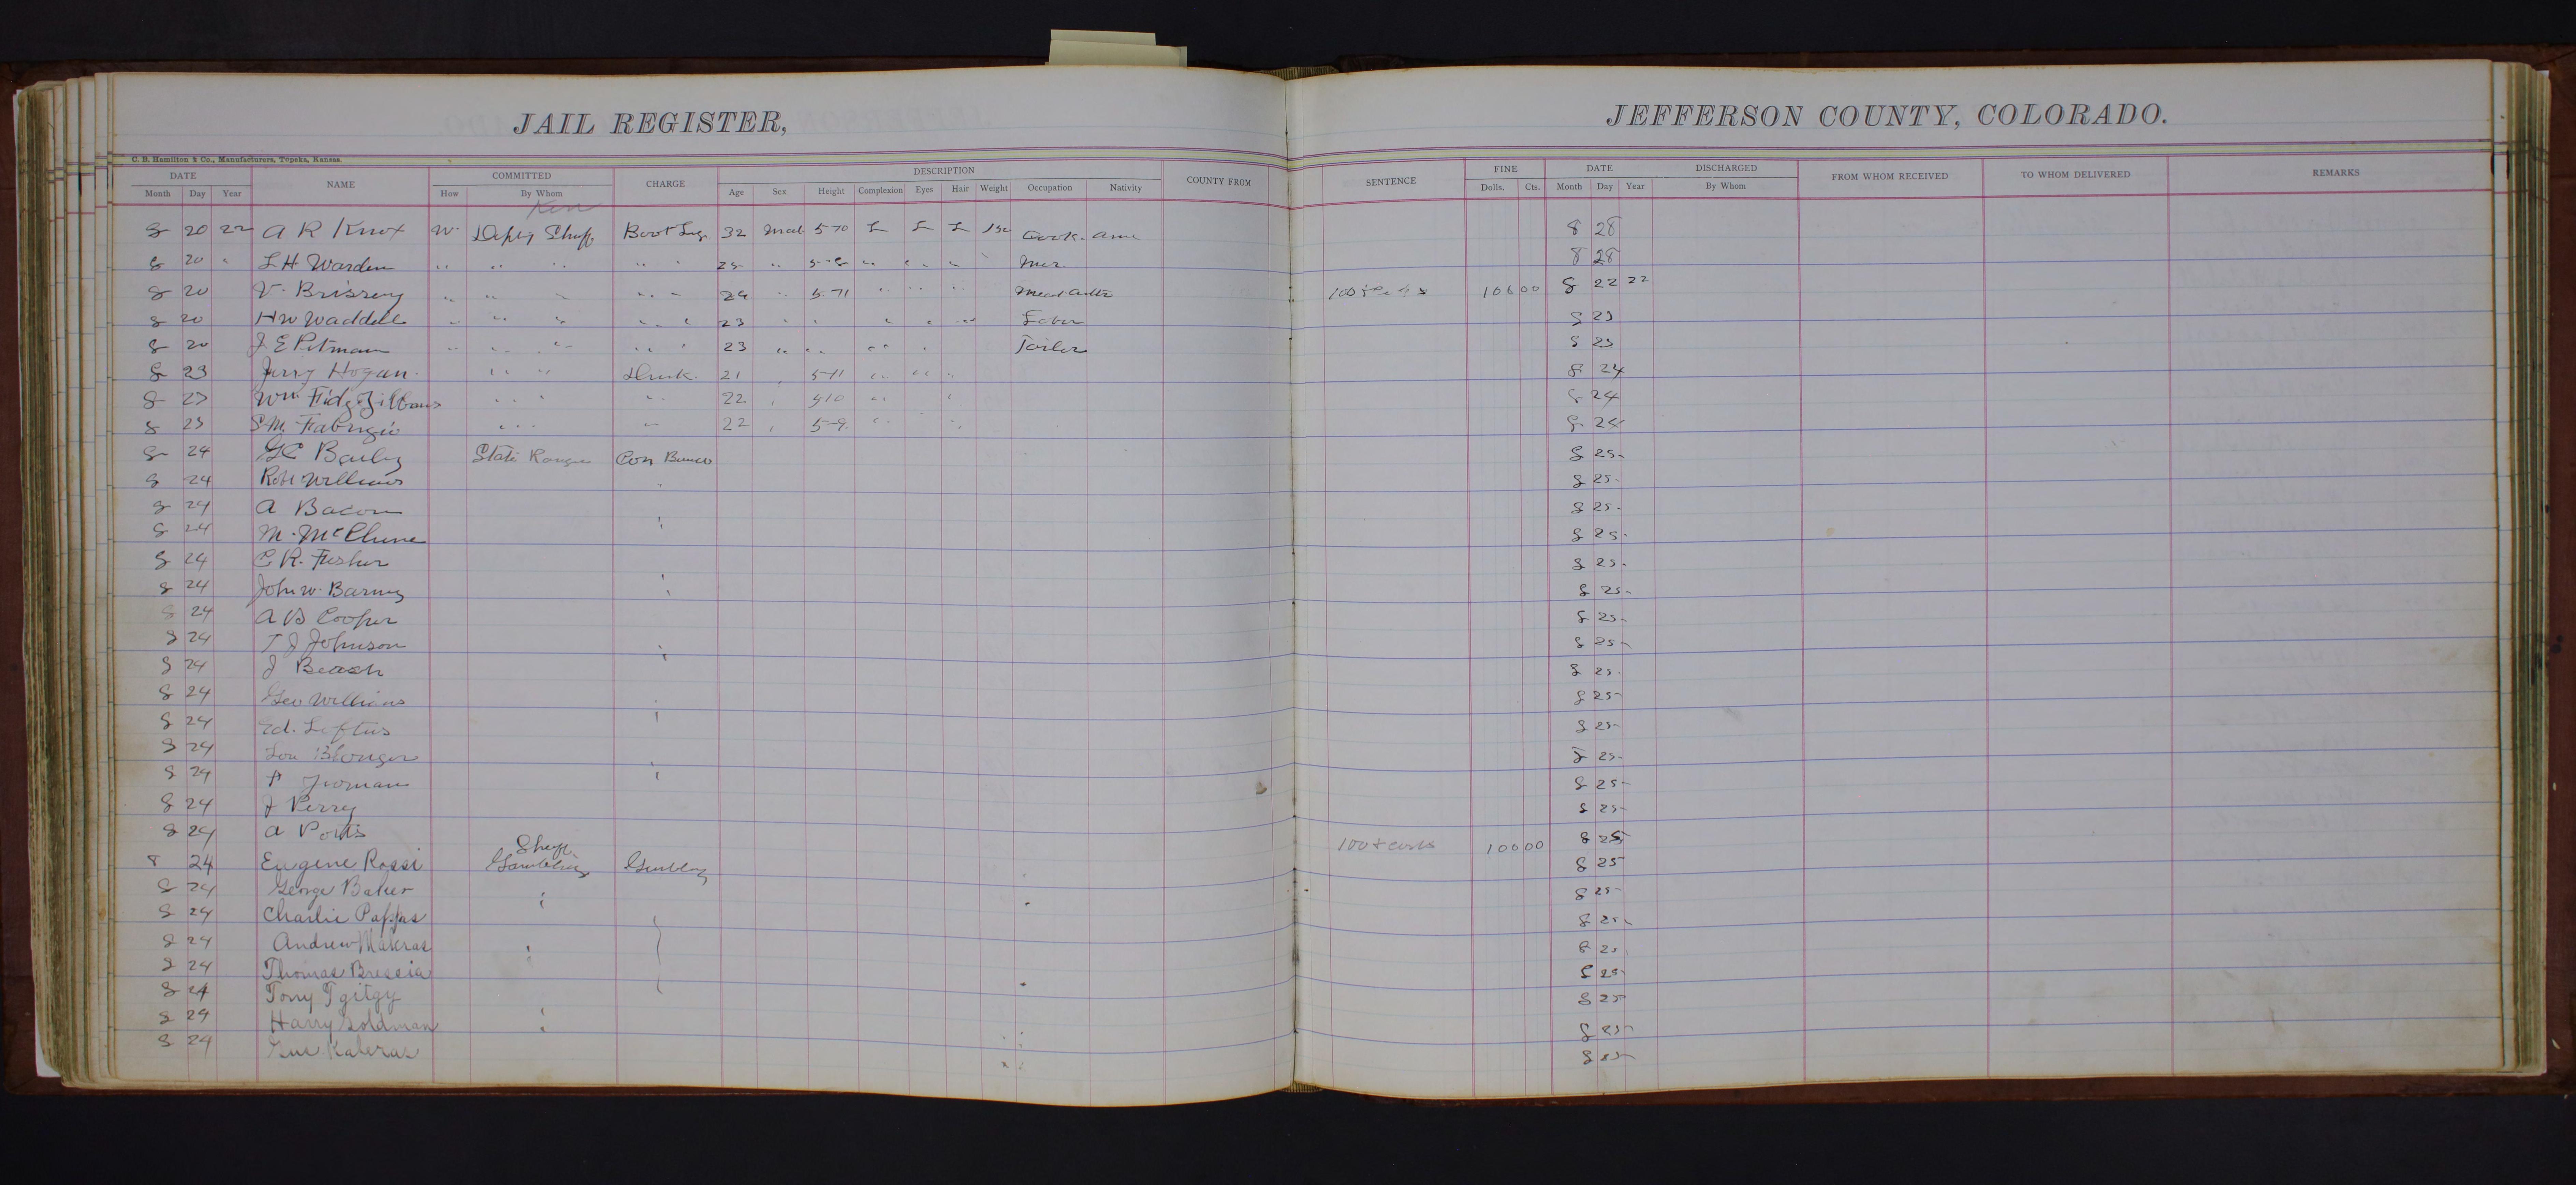 JAIL REGISTER, JEFFERSON COUNTY, COLORADO.
C. B. Hamilton & Co., Manufacturers, Topeka, Kansas.
DATE NAME COMMITTED CHARGE DESCRIPTION COUNTY FROM SENTENCE FINE DATE DISCHARGED FROM WHOM RECEIVED TO WHOM DELIVERED REMARKS
Month Day Year How By Whom Age Sex Height Complexion Eyes Hair Weight Occupation Nativity Dolls. Cts. Month Day Year By Whom
8 20 22 A R Knox W. Boot Leg 32 Mal 5-10 L L L Cook. Ame 8 28
8 20 " L H Warden " " " " " 25 " 5-8 " " " " 8 28
8 20 V. Brissey " " " " " 24 " 5-11 " " " Meat Cutter 106 00 8 22 22
8 20 H W Waddell " " " " " 23 " " " " " Labor 8 23
8 20 J E Pitman " " " " " 23 " " " " Tailor 8 23
8 23 Jerry Hogan. " " Drunk. 21 " 5-11 " " " 8 24
8 23 Wm " " " 22 " 5 10 " " 8 24
8 23 " " " 22 " 5-9 " " 8 24
8 24 G C Bailey State Ranger Con Bunco 8 25
8 24 Robt Williams " 8 25
8 24 A Bacon 8 25
8 24 M. McClune " 8 25
8 24 C R. Fisher 8 25
8 24 John W. Barney " 8 25
8 24 A B Cooper 8 25
8 24 T J Johnson " 8 25
8 24 J Beach " 8 25
8 24 Geo Williams " 8 25
8 24 Ed. Loftus " 8 25
8 24 Lou Blonger 8 25
8 24 " 8 25
8 24 J Perry 8 25
8 24 A Potts 100 & costs 100 00 8 25
8 24 Eugene Rossi Sheff Gambling Gambling 8 25
8 24 George Baker 8 25
8 24 Charlie Pappas " 8 25
8 24 Andrew Makras " 8 25
8 24 Thomas Brescia " 8 25
8 24 Tony 8 25
8 24 Harry Goldman " 8 25
8 24 Gus Kaleras " 8 25